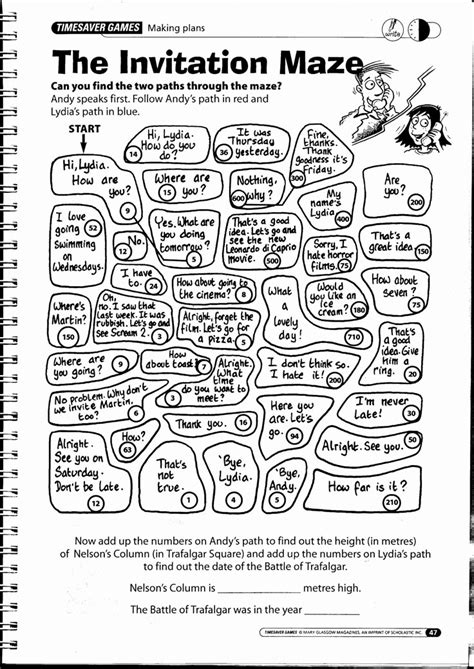 TIMESAVER GAMES Making plans
write
The Invitation Maze
Can you find the two paths through the maze?
Andy speaks first. Follow Andy's path in red and
Lydia's path in blue.
START
Hi, Lydia.
How do you
do?
14
It was
Thursday
36 yesterday.
Fine,
thanks.
Thank
goodness it's
Friday.
300
Hi, Lydia.
How are
you?
9
Where are
15 you?
Nothing,
600 why?
My
name's
Lydia.
400
Are
you?
I love
going 52
swimming
on
Wednesdays.
No.
12
Yes. What
are you
doing
tomorrow?
5
That's a good
idea. Let's go and
see the new
Leonardo di Caprio
movie. 500
Sorry, I
hate horror
films. 75
That's a
great idea 150
I have
to. 24
How about going to
the cinema? 8
What
a
lovely
day!
Would
you like an
ice cream?
180
How about
seven?
75
Where's
Martin?
150
Oh,
no. I saw that
last week. It was
rubbish. Let's go and
see Scream 2. 3
Alright, forget the
film. Let's go for
a pizza. 5
That's
a good
idea. Give
him a
ring. 20
Where are
you going? 9
How
about toast? 7
Alright.
What
time
do you want to
meet?
3
I don't think so.
I hate it. 200
No problem. Why don't
we invite Martin,
too?
6
Thank you. 16
Here you
are. Let's
go.
94
I'm never
late! 30
Alright.
See you on
Saturday.
Don't be late.
12
How?
63
Alright. See you. 50
That's
not
true.
1
'Bye,
Lydia.
4
'Bye,
Andy.
5
How far is it?
210
Now add up the numbers on Andy's path to find out the height (in metres)
of Nelson's Column (in Trafalgar Square) and add up the numbers on Lydia's path
to find out the date of the Battle of Trafalgar.
Nelson's Column is metres high.
The Battle of Trafalgar was in the year
TIMESAVER GAMES © MARY GLASGOW MAGAZINES, AN IMPRINT OF SCHOLASTIC INC. 47